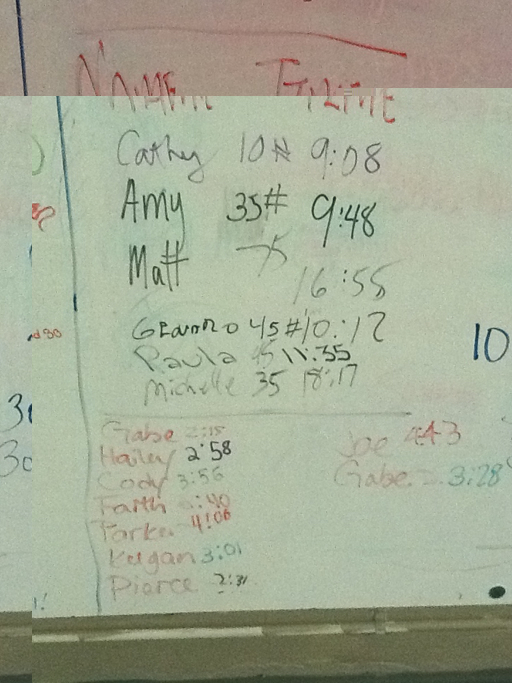 NAME TIME
Cathy 10# 9:08
Amy 35# 9:48
Matt 75 16:55
45 #10:12
Paula 45 11:35
Michelle 35 18:17
Gabe 2:15
Hailey 2:58
Cody 3:56
Faith :40
Parker 4:06
Keegan 3:01
Pierce 2:31
Joe 4:43
Gabe 3:28
10